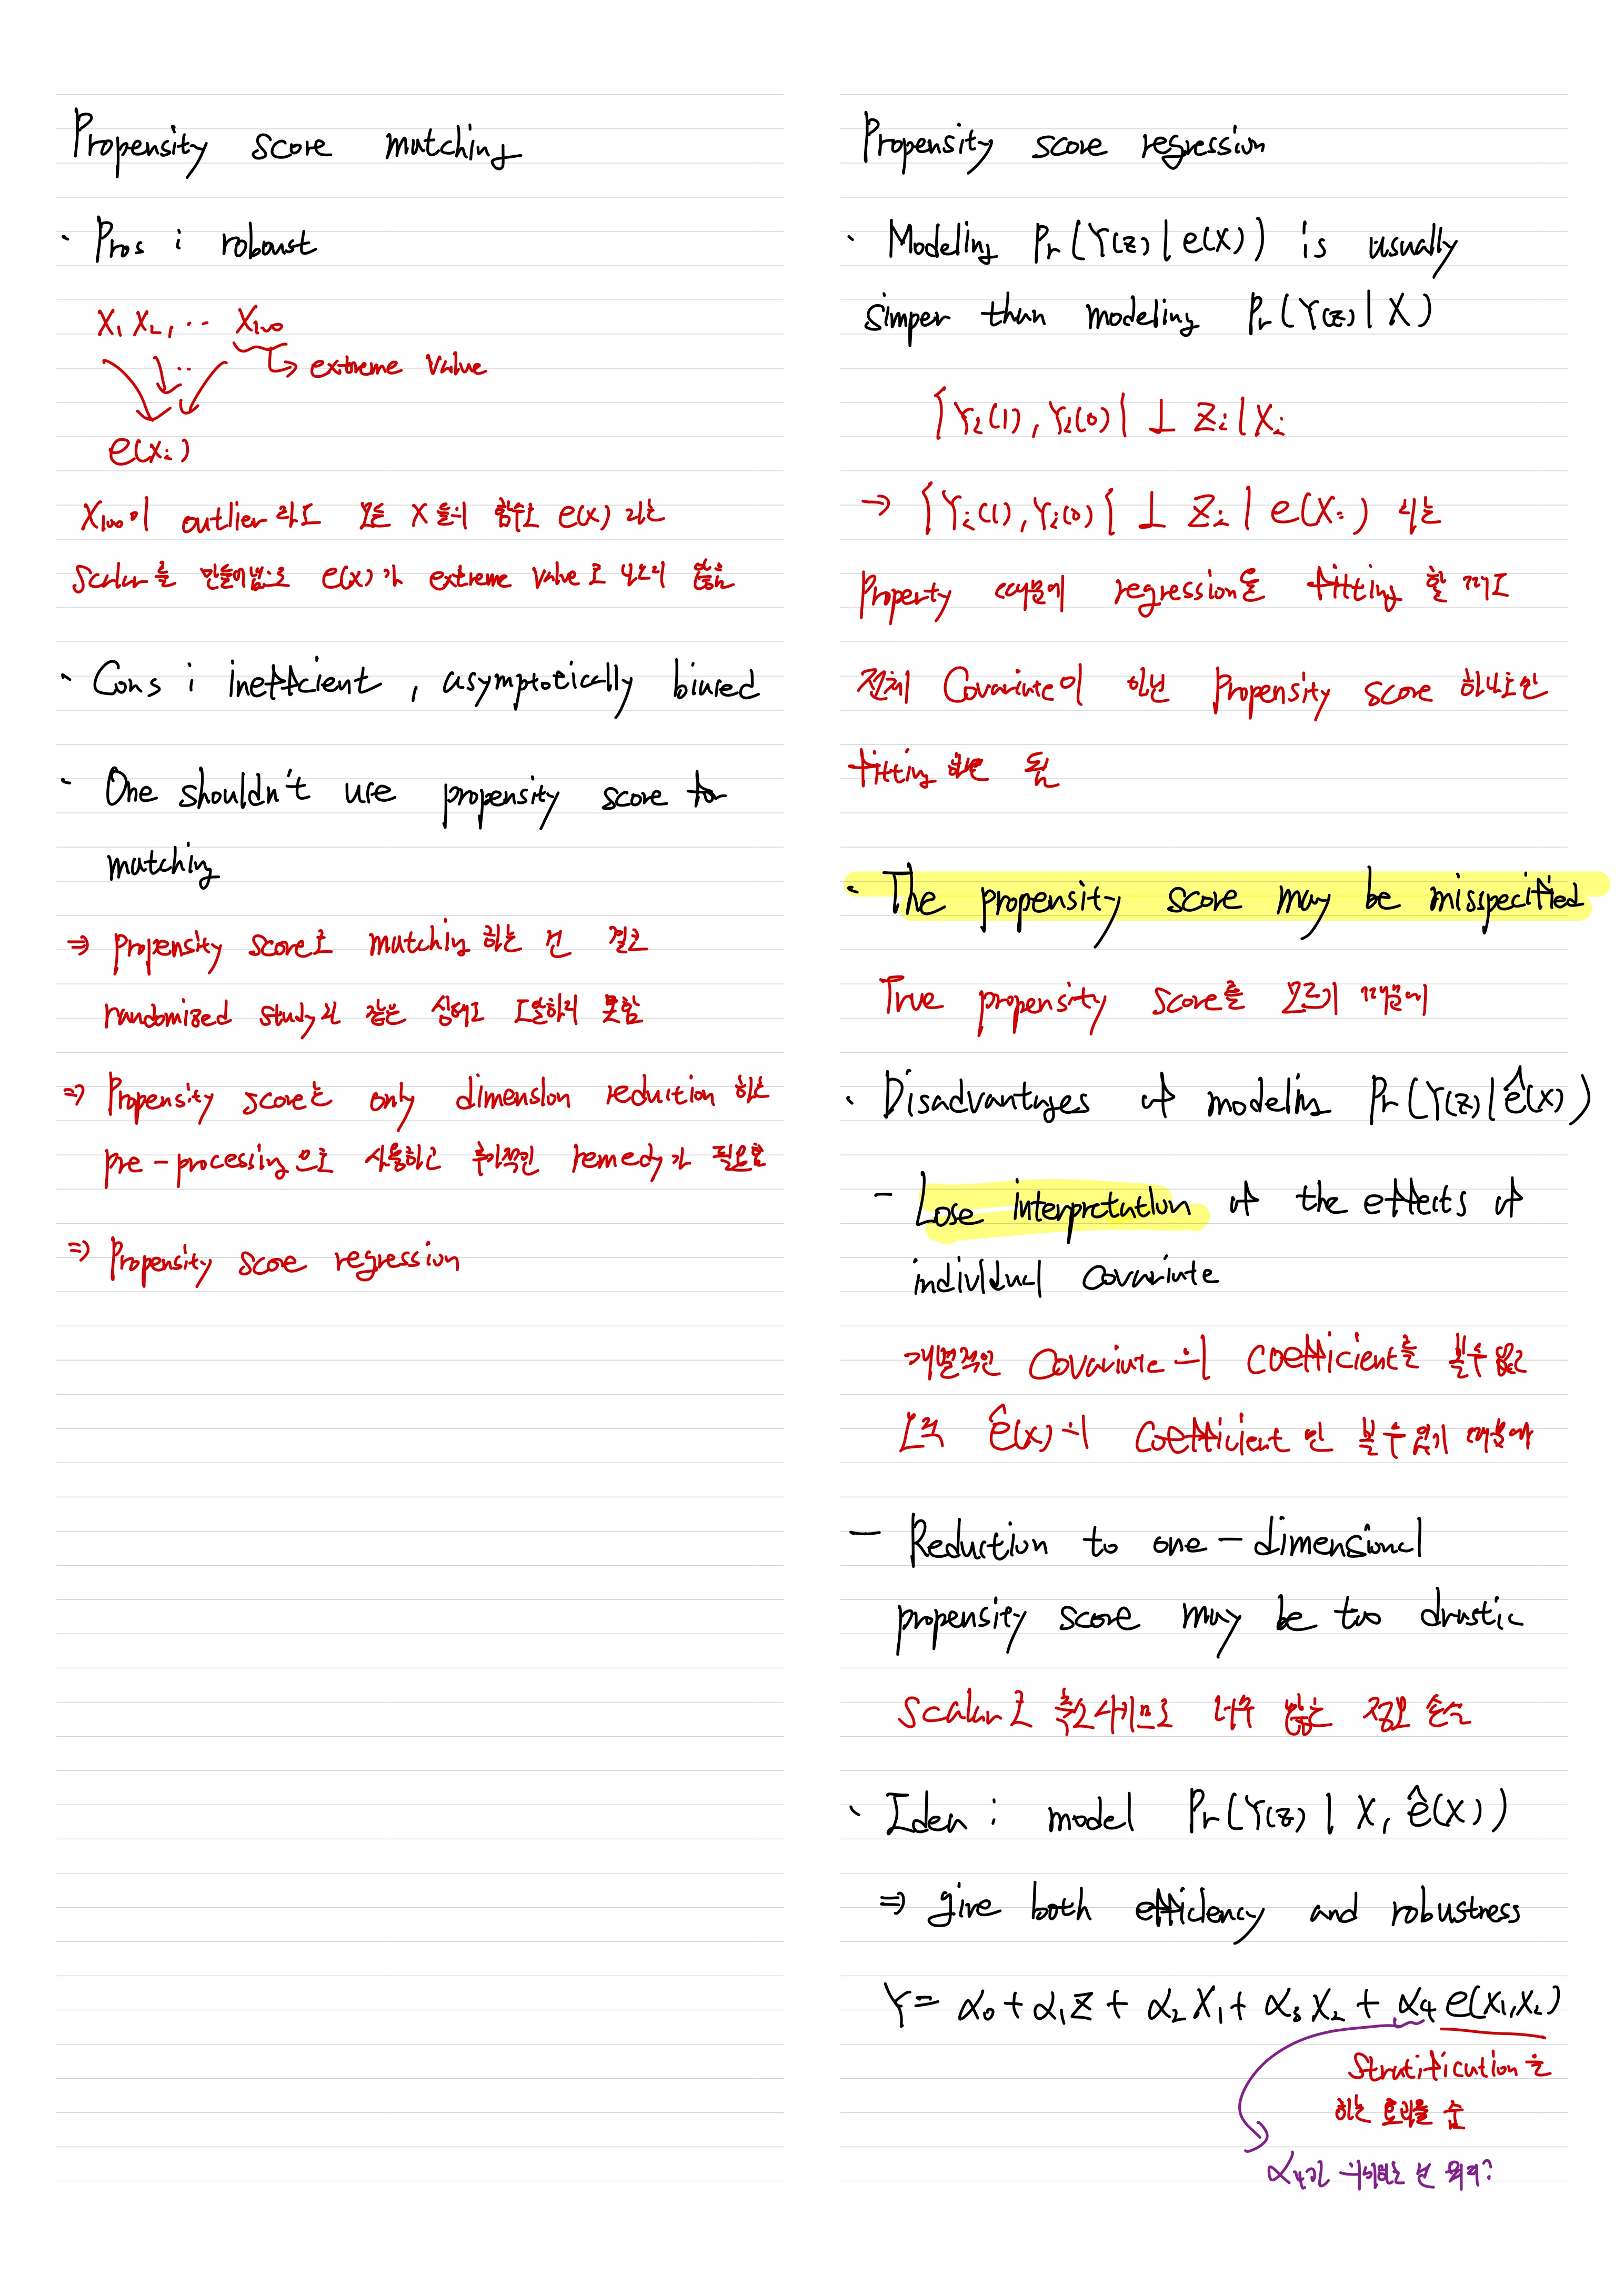 Propensity score matching
· Pros : robust
X₁ X₂, ·· X₁₀₀
··
→ extreme value
e(Xᵢ)
X₁₀₀이 outlier 라도 모든 X 들의 함수로 e(x) 라는
Scalar를 만들어냄으로 e(x)가 extreme value로 나오지 않음
· Cons : inefficient, asymptotically biased
· One shouldn't use propensity score to
matching
⇒ Propensity score로 matching 하는 건 결코
randomized study와 같은 상태로 도달하지 못함
⇒ Propensity score는 only dimension reduction 하는
pre-processing으로 사용하고 추가적인 remedy가 필요함
⇒ Propensity score regression
Propensity score regression
· Modeling Pr(Y(z) | e(X)) is usually
simper than modeling Pr(Y(z) | X)
{Yᵢ(1), Yᵢ(0)} ⊥ Zᵢ | Xᵢ
→ {Yᵢ(1), Yᵢ(0)} ⊥ Zᵢ | e(Xᵢ) 라는
Property 때문에 regression을 fitting 할 때도
전체 Covariate이 아닌 Propensity score 하나로만
fitting 하면 됨
· The propensity score may be misspecified
True propensity score를 모르기 때문에
· Disadvantages of modeling Pr(Y(z) | ê(x))
- Lose interpretation of the effects of
individual covariate
개별적인 Covariate의 coefficient를 볼 수 없고
오직 ê(x)의 coefficient만 볼 수 있기 때문에
- Reduction to one-dimensional
propensity score may be too drastic
Scalar로 축소시키므로 너무 많은 정보 손실
· Idea : model Pr(Y(z) | X, ê(X))
⇒ give both efficiency and robustness
Y = α₀ + α₁Z + α₂X₁ + α₃X₂ + α₄ e(X₁, X₂)
Stratification을
하는 효과를 줌
α₄가 의미하는 건 뭐지?